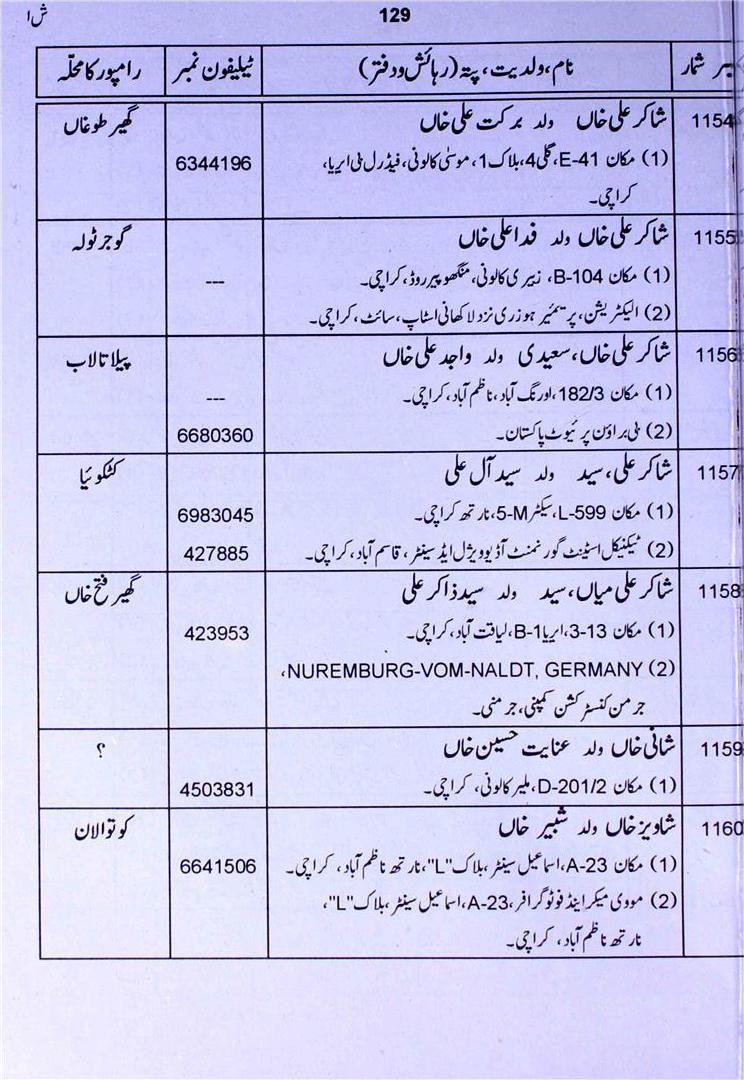 129
ش ا
بر شمار نام، ولدیت، پتہ (رہائش و دفتر) ٹیلیفون نمبر رامپور کا محلّہ
1154 شاکر علی خاں ولد برکت علی خاں گھیر طوغاں
(1) مکان E-41، گلی 4، بلاک 1، موسیٰ کالونی، فیڈرل بی ایریا، 6344196
کراچی۔
1155 شاکر علی خاں ولد فدا علی خاں گوجر ٹولہ
(1) مکان B-104، زبیری کالونی، منگھوپیر روڈ، کراچی۔ ---
(2) الیکٹریشن، پریمئیر ہوزری نزد لاکھانی اسٹاپ، سائٹ، کراچی۔
1156 شاکر علی خاں، سعیدی ولد واجد علی خاں پیلا تالاب
(1) مکان 182/3، اورنگ آباد، ناظم آباد، کراچی۔ ---
(2) بی براؤن پرئیوٹ پاکستان۔ 6680360
1157 شاکر علی، سید ولد سید آل علی کٹکوئیا
(1) مکان L-599، سیکٹر 5-M، نارتھ کراچی۔ 6983045
(2) ٹیکنیکل اسٹینٹ گورنمنٹ آڈیو ویژل ایڈ سینٹر، قاسم آباد، کراچی۔ 427885
1158 شاکر علی میاں، سید ولد سید ذاکر علی گھیر فتح خاں
(1) مکان 3-13، ایریا 1-B، لیاقت آباد، کراچی۔ 423953
(2) NUREMBURG-VOM-NALDT, GERMANY،
جرمن کنسٹرکشن کمپنی، جرمنی۔
1159 شانی خاں ولد عنایت حسین خاں ؟
(1) مکان D-201/2، ملیر کالونی، کراچی۔ 4503831
1160 شاویز خاں ولد شبیر خاں کوتوالان
(1) مکان A-23، اسماعیل سینٹر، بلاک "L"، نارتھ ناظم آباد، کراچی۔ 6641506
(2) مووی میکر اینڈ فوٹو گرافر، A-23، اسماعیل سینٹر، بلاک "L"،
نارتھ ناظم آباد، کراچی۔